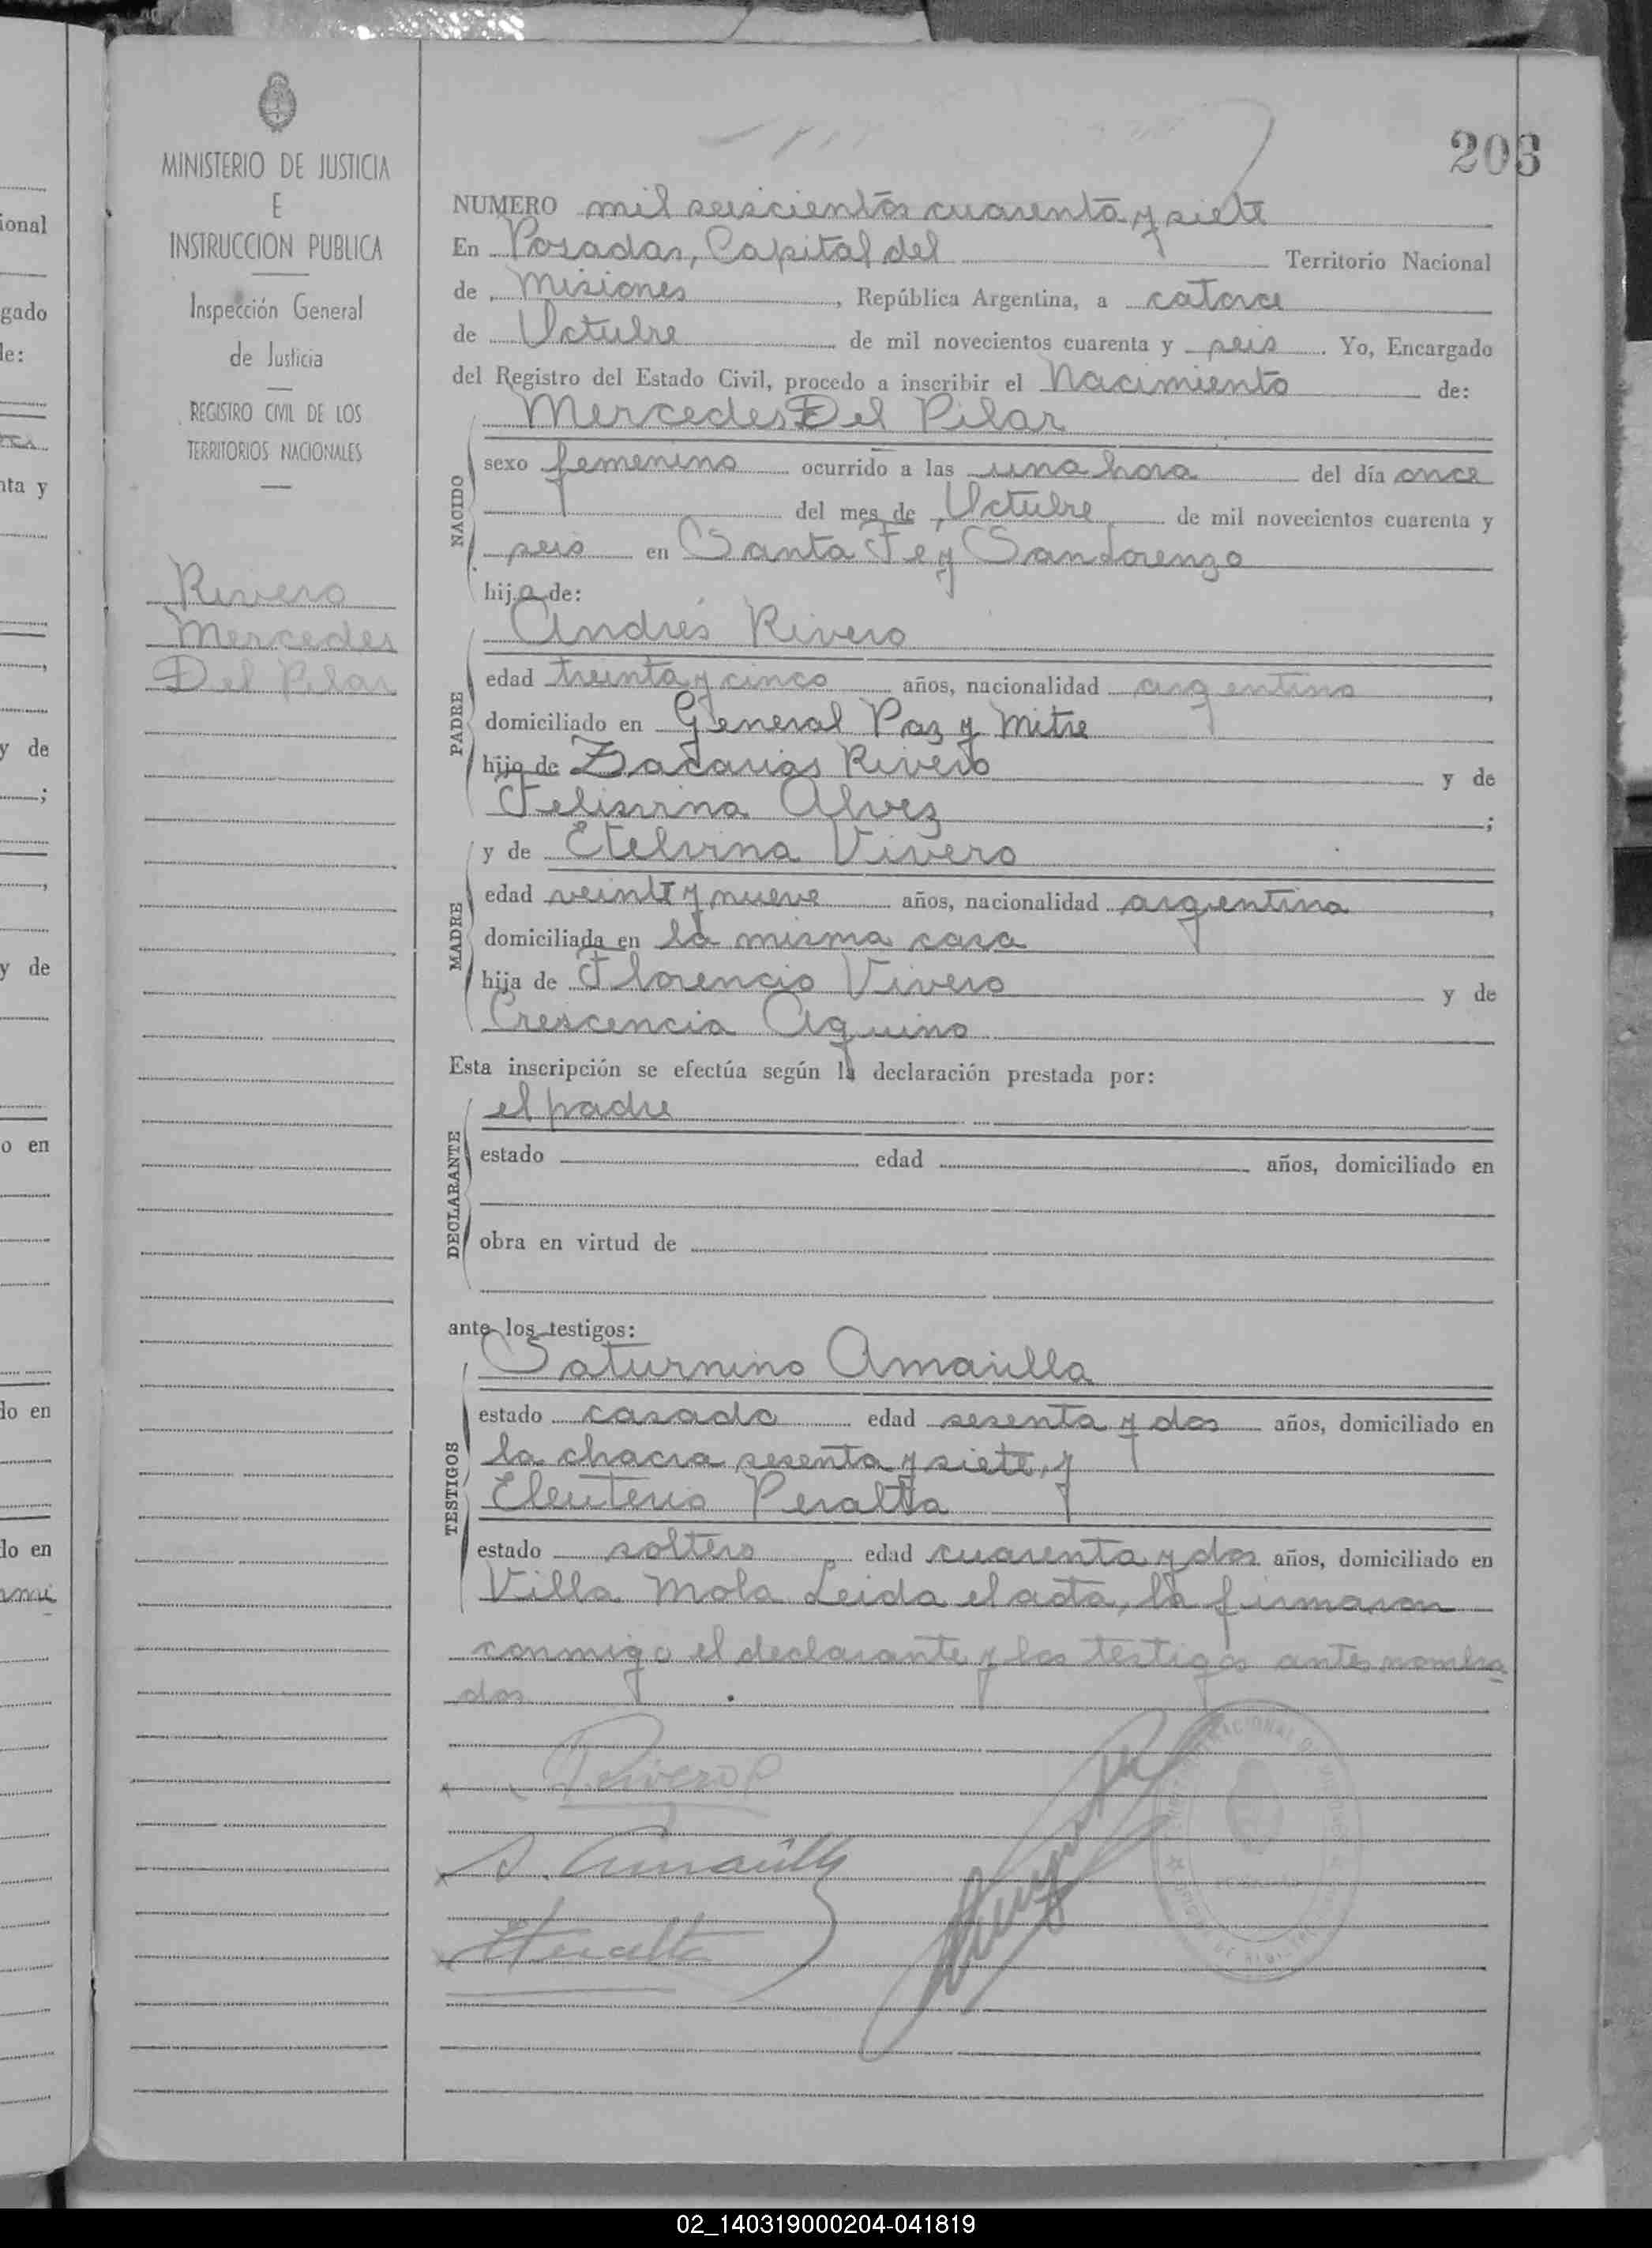 203
MINISTERIO DE JUSTICIA
E
INSTRUCCION PUBLICA
Inspección General
de Justicia
REGISTRO CIVIL DE LOS
TERRITORIOS NACIONALES
Rivero
Mercedes
Del Pilar
NUMERO mil seiscientos cuarenta y siete
En Posadas, Capital del Territorio Nacional
de Misiones, República Argentina, a catorce
de Octubre de mil novecientos cuarenta y seis. Yo, Encargado
del Registro del Estado Civil, procedo a inscribir el Nacimiento de:
NACIDO
Mercedes Del Pilar
sexo femenino ocurrido a las una hora del día once
del mes de Octubre de mil novecientos cuarenta y
seis en Santa Fe y San Lorenzo
hija de:
PADRE
Andrés Rivero
edad treinta y cinco años, nacionalidad argentino,
domiciliado en General Paz y Mitre
hijo de Zacarias Rivero y de
Felisvina Alvez;
MADRE
y de Etelvina Vivero
edad veinte y nueve años, nacionalidad argentina,
domiciliada en la misma casa
hija de Florencio Vivero y de
Crescencia Aquino
Esta inscripción se efectúa según la declaración prestada por:
DECLARANTE
el padre
estado edad años, domiciliado en
obra en virtud de
ante los testigos:
TESTIGOS
Saturnino Amarilla
estado casado edad sesenta y dos años, domiciliado en
la chacra sesenta y siete, y
Eleuterio Peralta
estado soltero edad cuarenta y dos años, domiciliado en
Villa Mola Leida el acta, la firmaron
conmigo el declarante y los testigos antes nombra
dos
Rivero
S. Amarilla
EPeralta
ional
gado
de:
nta y
y de
;
y de
o en
do en
do en
02_140319000204-041819